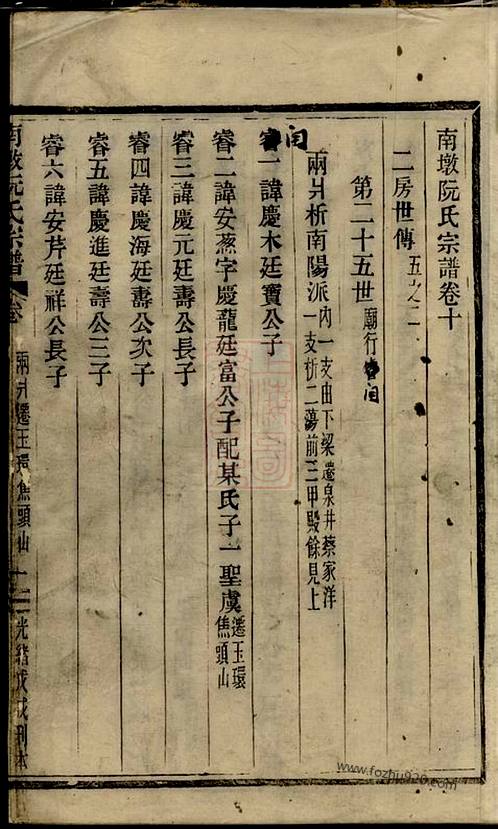 南墩阮氏宗譜卷十
二房世傳五之二
第二十五世廟行睿闰
兩爿析南陽派內一支由下梁遷泉井蔡家洋
一支析二蕩前三甲殿餘見上
闰
睿一諱慶木廷寶公子
睿二諱安蒸字慶龍廷富公子配某氏子一聖虞遷玉環
焦頭山
睿三諱慶元廷壽公長子
睿四諱慶海廷壽公次子
睿五諱慶進廷壽公三子
睿六諱安芹廷祥公長子
南墩阮氏宗譜 卷 兩爿遷玉環焦頭山 一 光緒戊戌刊本
www.fozhu920.com